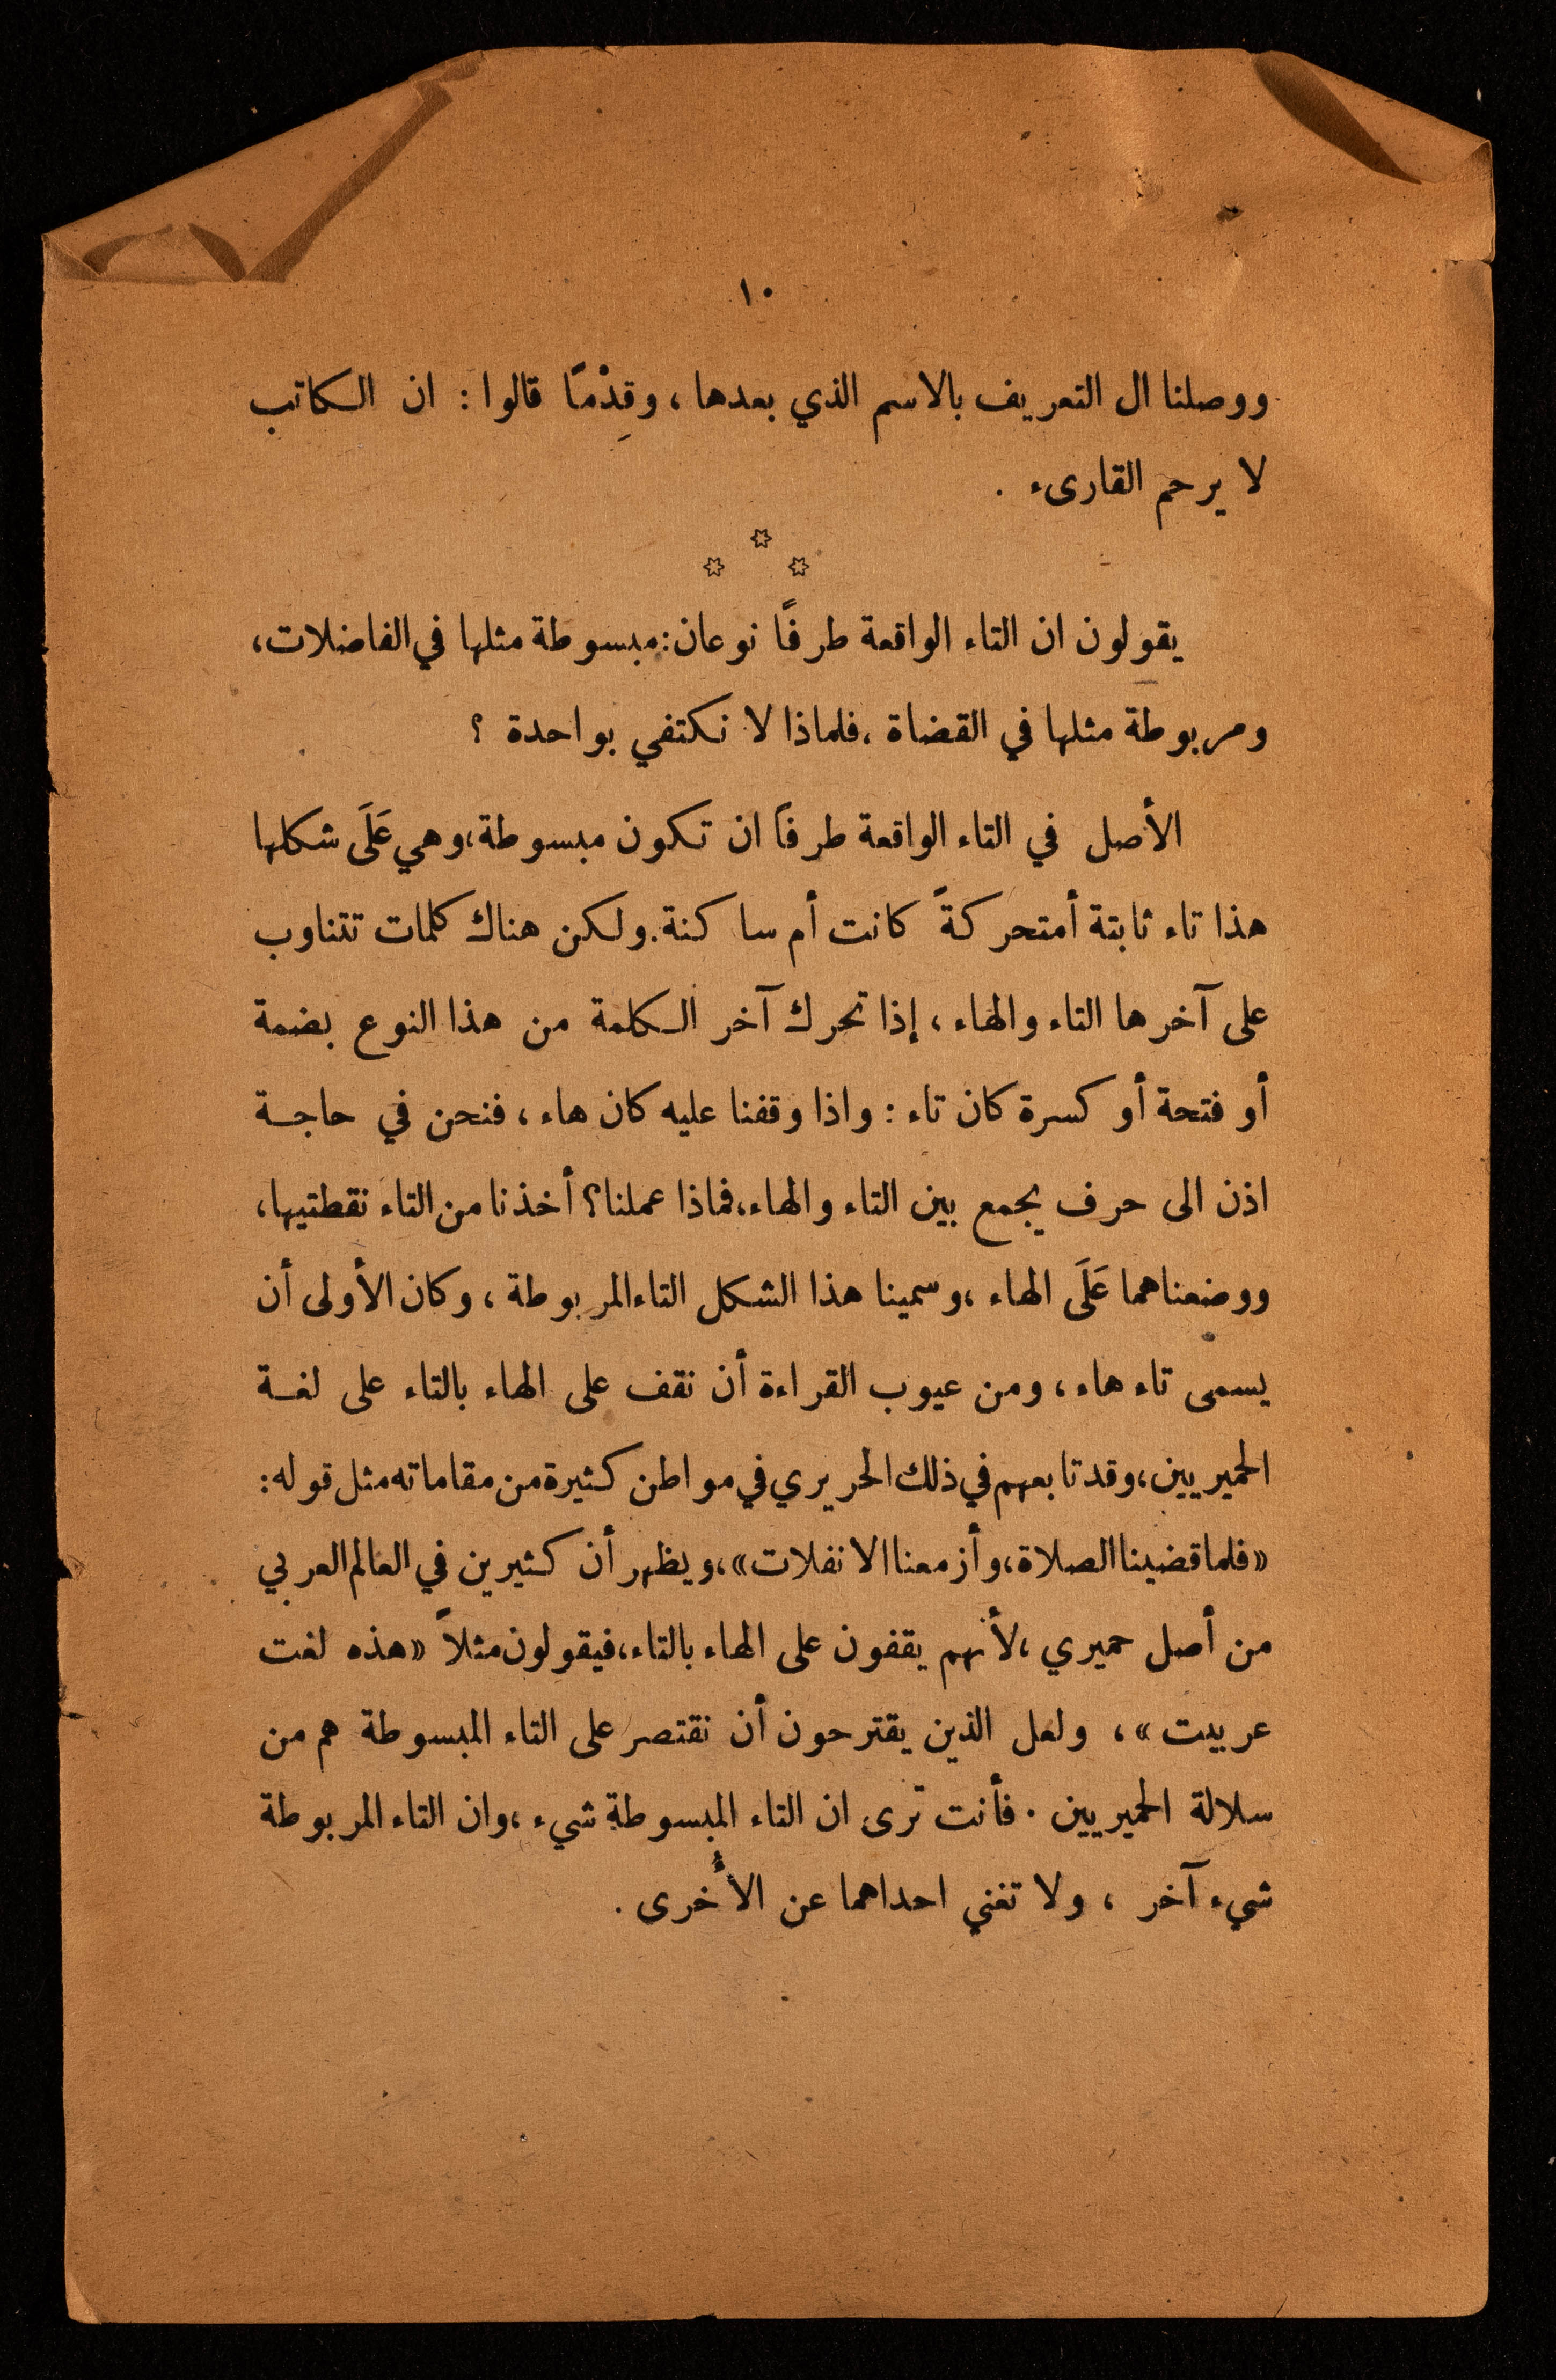 ١٠
ووصلنا ال التعريف بالاسم الذي بعدها ، وقِدْمًا قالوا : ان الكاتب
لا يرحم القارىء .
يقولون ان التاء الواقعة طرفًا نوعان: مبسوطة مثلها في الفاضلات،
ومربوطة مثلها في القضاة ، فلماذا لا نكتفي بواحدة ؟
الأصل في التاء الواقعة طرفًا ان تكون مبسوطة ، وهي عَلَى شكلها
هذا تاء ثابتة أمتحركةً كانت أم ساكنة . ولكن هناك كلمات تتناوب
على آخرها التاء والهاء ، إذا تحرك آخر الكلمة من هذا النوع بضمة
أو فتحة أو كسرة كان تاء : واذا وقفنا عليه كان هاء ، فنحن في حاجة
اذن الى حرف يجمع بين التاء والهاء، فماذا عملنا؟ أخذنا من التاء نقطتيها،
ووضعناهما عَلَى الهاء ، وسمينا هذا الشكل التاء المربوطة ، وكان الأولى أن
يسمى تاء هاء ، ومن عيوب القراءة أن نقف على الهاء بالتاء على لغة
الحميريين، وقد تابعهم في ذلك الحريري في مواطن كثيرة من مقاماته مثل قوله :
«فلما قضينا الصلاة، وأزمعنا الانفلات»، ويظهر أن كثيرين في العالم العربي
من أصل حميري ، لأنهم يقفون على الهاء بالتاء، فيقولون مثلاً «هذه لغت
عربيت » ، ولعل الذين يقترحون أن نقتصر على التاء المبسوطة هم من
سلالة الحميريين . فأنت ترى ان التاء المبسوطة شيء ، وان التاء المربوطة
شيء آخر ، ولا تغني احداهما عن الأُخرى .